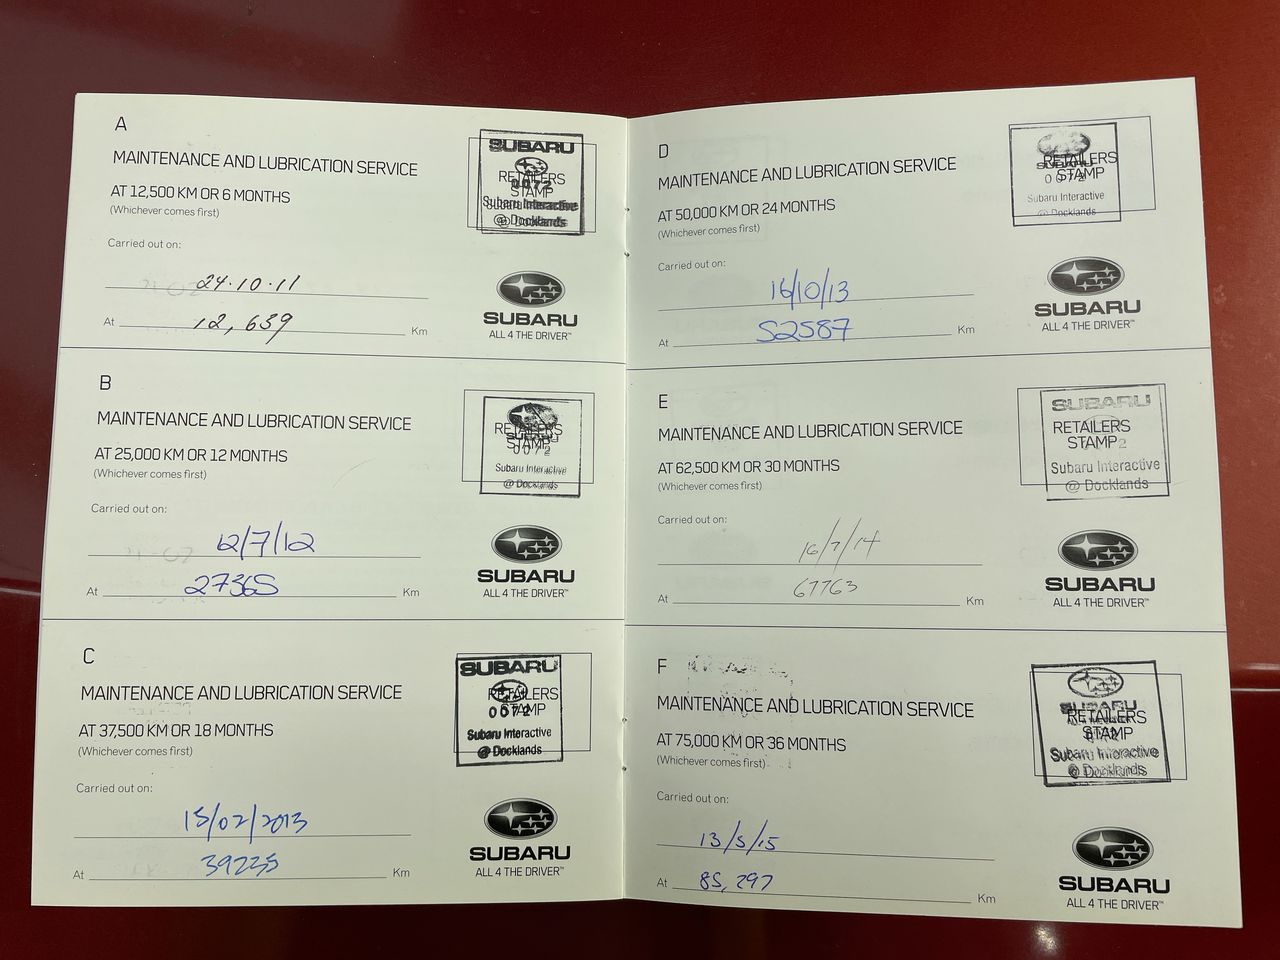 A
MAINTENANCE AND LUBRICATION SERVICE
AT 12,500 KM OR 6 MONTHS
(Whichever comes first)
Carried out on:
24.10.11
At 12,639 Km
SUBARU
0072
RETAILERS
STAMP
Subaru Interactive
@ Docklands
SUBARU
ALL 4 THE DRIVER™
B
MAINTENANCE AND LUBRICATION SERVICE
AT 25,000 KM OR 12 MONTHS
(Whichever comes first)
Carried out on:
12/7/12
At 27365 Km
RETAILERS
SUBARU
STAMP
0072
Subaru Interactive
@ Docklands
SUBARU
ALL 4 THE DRIVER™
C
MAINTENANCE AND LUBRICATION SERVICE
AT 37,500 KM OR 18 MONTHS
(Whichever comes first)
Carried out on:
15/02/2013
At 39235 Km
SUBARU
RETAILERS
STAMP
0072
Subaru Interactive
@ Docklands
SUBARU
ALL 4 THE DRIVER™
D
MAINTENANCE AND LUBRICATION SERVICE
AT 50,000 KM OR 24 MONTHS
(Whichever comes first)
Carried out on:
16/10/13
At 52587 Km
RETAILERS
SUBARU
STAMP
0072
Subaru Interactive
@ Docklands
SUBARU
ALL 4 THE DRIVER™
E
MAINTENANCE AND LUBRICATION SERVICE
AT 62,500 KM OR 30 MONTHS
(Whichever comes first)
Carried out on:
16/7/14
At 67763 Km
SUBARU
RETAILERS
STAMP
Subaru Interactive
@ Docklands
SUBARU
ALL 4 THE DRIVER™
F
MAINTENANCE AND LUBRICATION SERVICE
AT 75,000 KM OR 36 MONTHS
(Whichever comes first)
Carried out on:
13/5/15
At 85,297 Km
SUBARU
RETAILERS
STAMP
Subaru Interactive
@ Docklands
SUBARU
ALL 4 THE DRIVER™